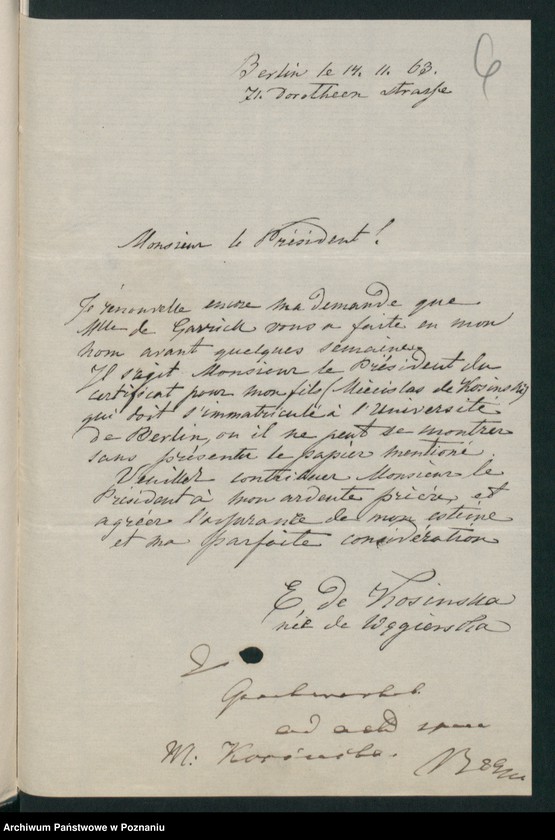 6
Berlin le 14. 11. 63.
71. Dorotheen strasse
Monsieur le Président!
Je rénouvelle encore ma demande que
Mlle de Garrick vous a faite en mon
nom avant quelques semaines.
Il s'agit Monsieur le Président du
certificat pour mon fils (Miécislas de Kosinski)
qui doit s'immatriculé à l'Université
de Berlin, ou il ne peut se montrer
sans présenté le papier mentioné.
Veuillez contribuer Monsieur le
Président à mon ardente prière, et
agréer l'assurance de mon estime
et ma parfaite considération
E de Kosinska
née de Węgierska
ad acta
M: Kosinska.
Archiwum Państwowe w Poznaniu